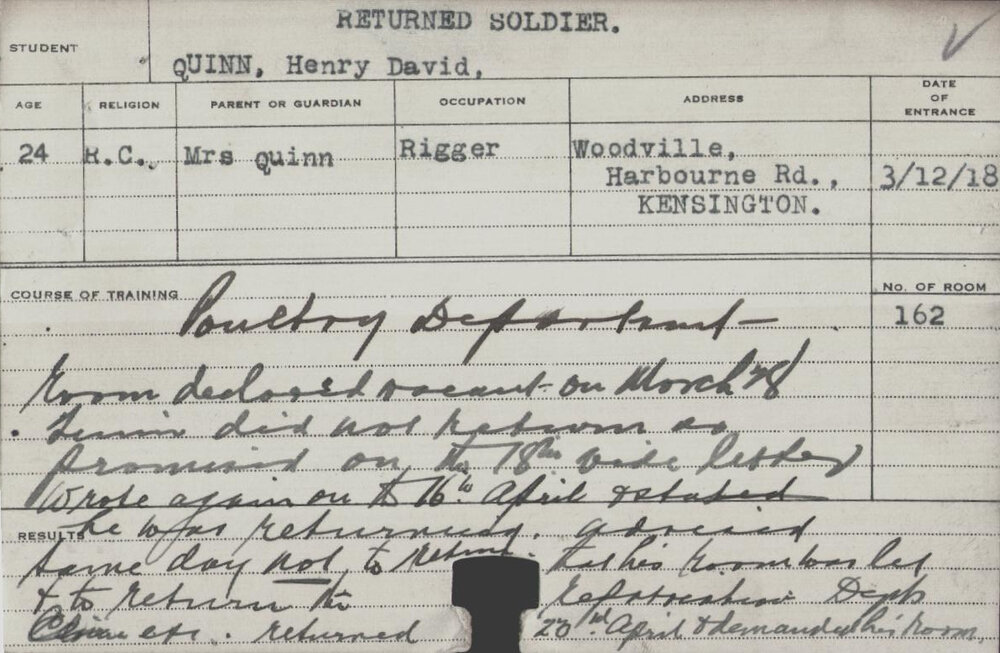 RETURNED SOLDIER.
STUDENT
QUINN, Henry David,
AGE RELIGION PARENT OR GUARDIAN OCCUPATION ADDRESS DATE OF ENTRANCE
24 R.C., Mrs Quinn Rigger Woodville,
Harbourne Rd., 3/12/18
KENSINGTON.
COURSE OF TRAINING No. OF ROOM
Poultry Department 162
Room declared vacant on March 28
did not return as
promised on the 18th vide letter
wrote again on the 16th April & stated
RESULTS he was returning. advised
same day not to return. that his room was let
& to return the Repatriation Dept
etc. returned 20 April & demanded his room.